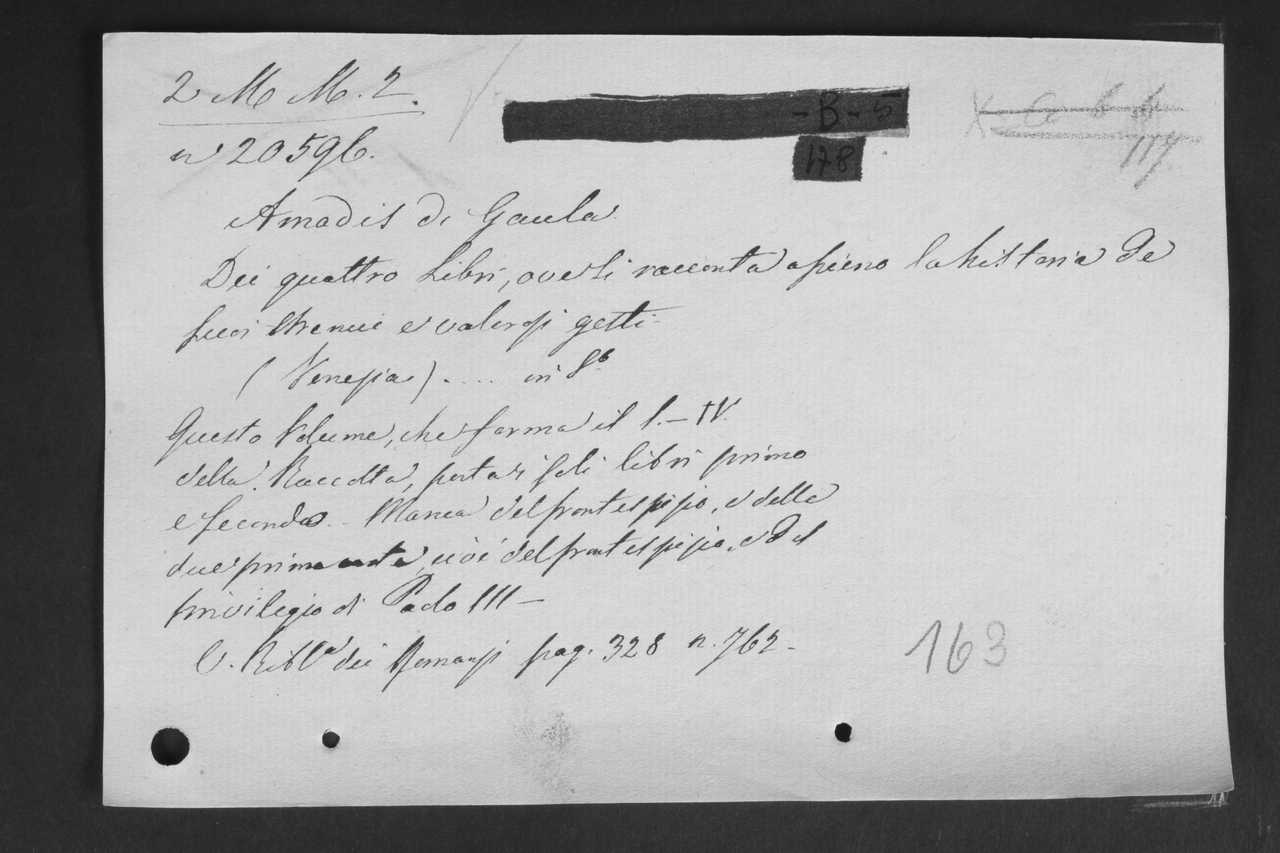 2 M M. 2.
- B - 5
178
117
n° 20596.
Amadis di Gaula
Dei quattro Libri, ove si racconta a pieno la historia de
suoi strenui e valorosi gesti
(Venezia) .... in 8°
Questo Volume, che forma il 1. - IV.
della Raccolta, porta i soli libri primo
e secondo. Manca del frontespizio, e delle
due prime carte, cioè del frontespizio, e del
privilegio di Paolo III -
V. Bibl.ª dei Romanzi pag. 328 n. 762 -
163